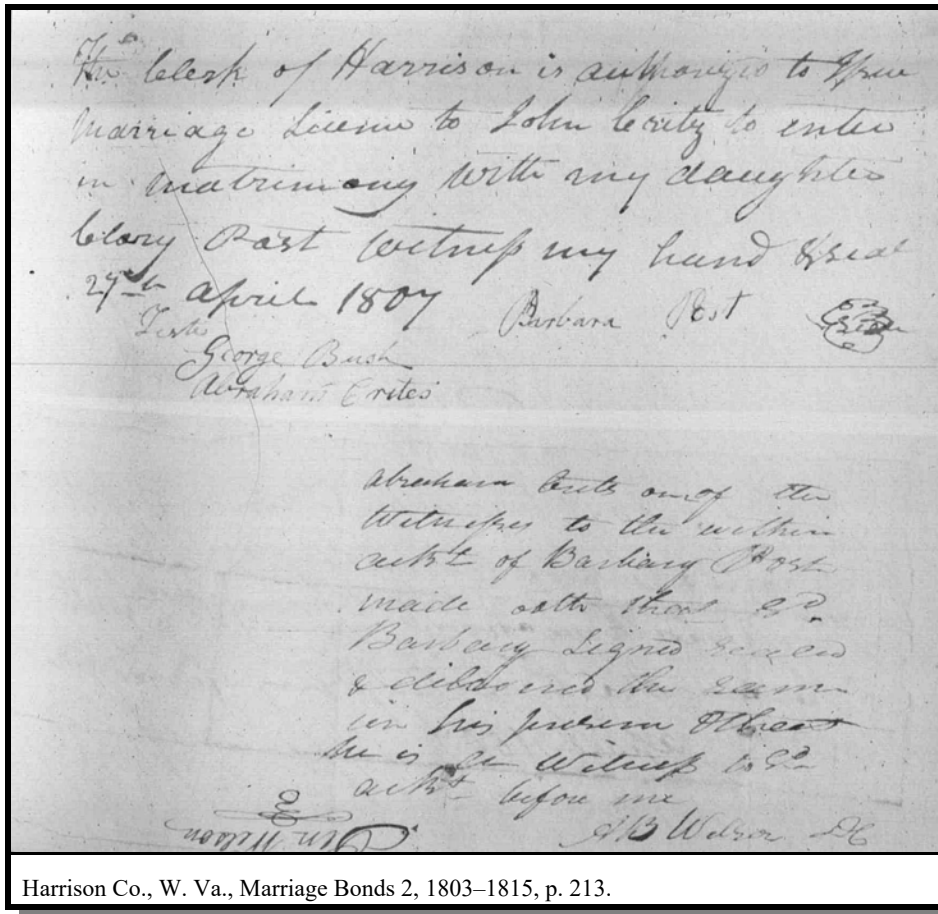 The Clerk of Harrison is authorizd to Issue
Marriage Licence to John Critz to enter
in matrimony with my daughter
Clary Post Witness my hand & seal
27th April 1807 Barbara Post Seal
Teste
George Bush
Abraham Crites
abraham Crits one of the
Witnesses to the within
acknt of Barbary Post
made oath that Sd
Barbary Signed sealed
& delivered the same
in his presence & that
he is a Witness to Sd
acknt before me
Wilson DC
Wilson
Harrison Co., W. Va., Marriage Bonds 2, 1803–1815, p. 213.